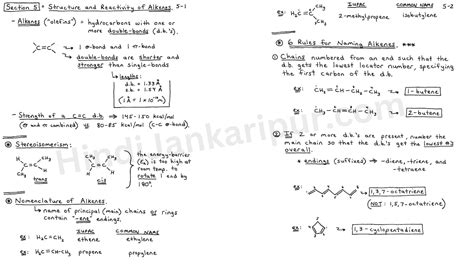 Section 5: Structure and Reactivity of Alkenes. 5-1
→ Alkenes ("olefins") = hydrocarbons with one or
more double-bonds (d.b.'s).
C=C → 1 σ-bond and 1 π-bond
→ double-bonds are shorter and
stronger than single-bonds
→ lengths:
d.b. = 1.33 Å
s.b. = 1.54 Å
(1 Å = 1×10⁻¹⁰ m)
→ Strength of a C=C d.b. ⇒ 145-150 kcal/mol
(σ and π combined) vs 80-85 kcal/mol (C-C σ-bond).
Stereoisomerism:
CH₃ H
C=C
H CH₃
trans
CH₃ CH₃
C=C
H H
cis
the energy-barrier
(Ea) is too high at
room temp. to
rotate 1 end by
180°.
Nomenclature of Alkenes.
→ name of principal (main) chains or rings
contain "-ene" endings.
IUPAC COMMON NAME
ex: H₂C=CH₂ ethene ethylene
ex: H₂C=CH-CH₃ propene propylene
IUPAC COMMON NAME 5-2
ex: H₂C=C CH₃ CH₃ 2-methylpropene isobutylene
6 Rules for Naming Alkenes. ***
① Chains numbered from an end such that the
d.b. gets the lowest locator number, specifying
the first carbon of the d.b.
ex: CH₂=CH-CH₂-CH₃ → 1-butene
ex: CH₃-CH=CH-CH₃ → 2-butene
② If 2 or more d.b.'s are present, number the
main chain so that the d.b.'s get the lowest #'s
overall.
→ endings (suffixes) → -diene, -triene, and
-tetraene
ex: → 1,3,7-octatriene
(NOT: 1,5,7-octatriene)
ex: → 1,3-cyclopentadiene
Hindi.sankaripur.com